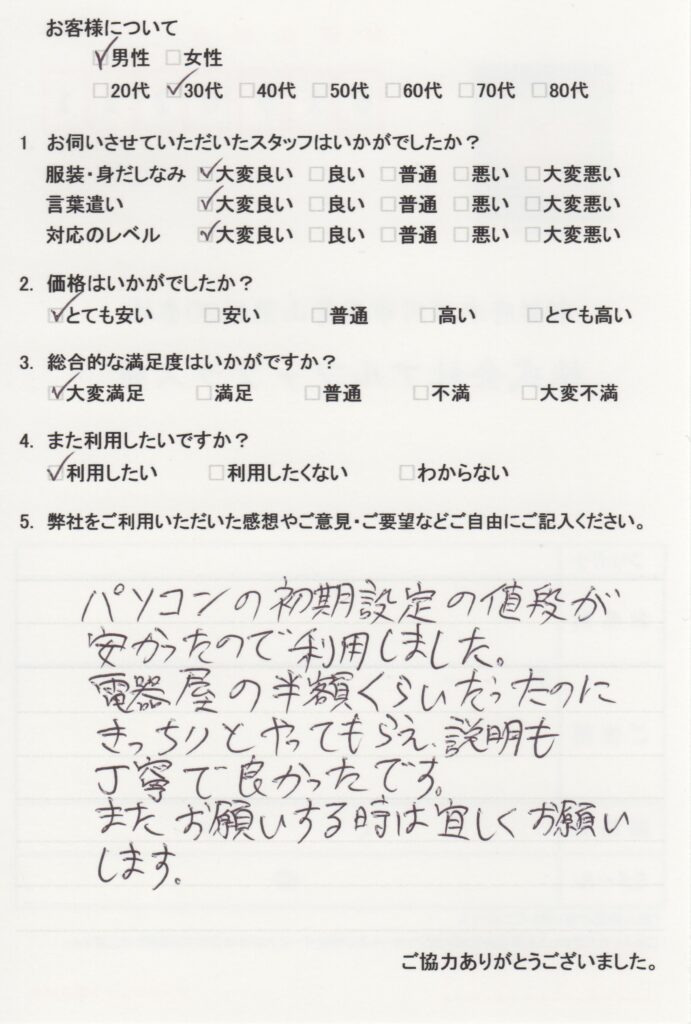 お客様について
☑男性 □女性
□20代 ☑30代 □40代 □50代 □60代 □70代 □80代
1 お伺いさせていただいたスタッフはいかがでしたか？
服装・身だしなみ ☑大変良い □良い □普通 □悪い □大変悪い
言葉遣い ☑大変良い □良い □普通 □悪い □大変悪い
対応のレベル ☑大変良い □良い □普通 □悪い □大変悪い
2. 価格はいかがでしたか？
☑とても安い □安い □普通 □高い □とても高い
3. 総合的な満足度はいかがですか？
☑大変満足 □満足 □普通 □不満 □大変不満
4. また利用したいですか？
☑利用したい □利用したくない □わからない
5. 弊社をご利用いただいた感想やご意見・ご要望などご自由にご記入ください。
パソコンの初期設定の値段が
安かったので利用しました。
電器屋の半額くらいだったのに
きっちりとやってもらえ、説明も
丁寧で良かったです。
またお願いする時は宜しくお願い
します。
ご協力ありがとうございました。